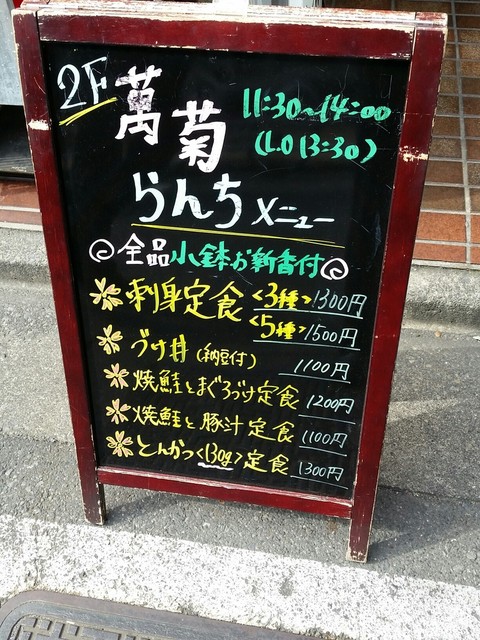 2F 萬菊 11:30~14:00
(L.O 13:30)
らんち メニュー
全品小鉢お新香付
刺身定食<3種>1300円
<5種>1500円
づけ丼(納豆付) 1100円
焼鮭とまぐろづけ定食 1200円
焼鮭と豚汁定食 1100円
とんかつ<130g>定食 1300円